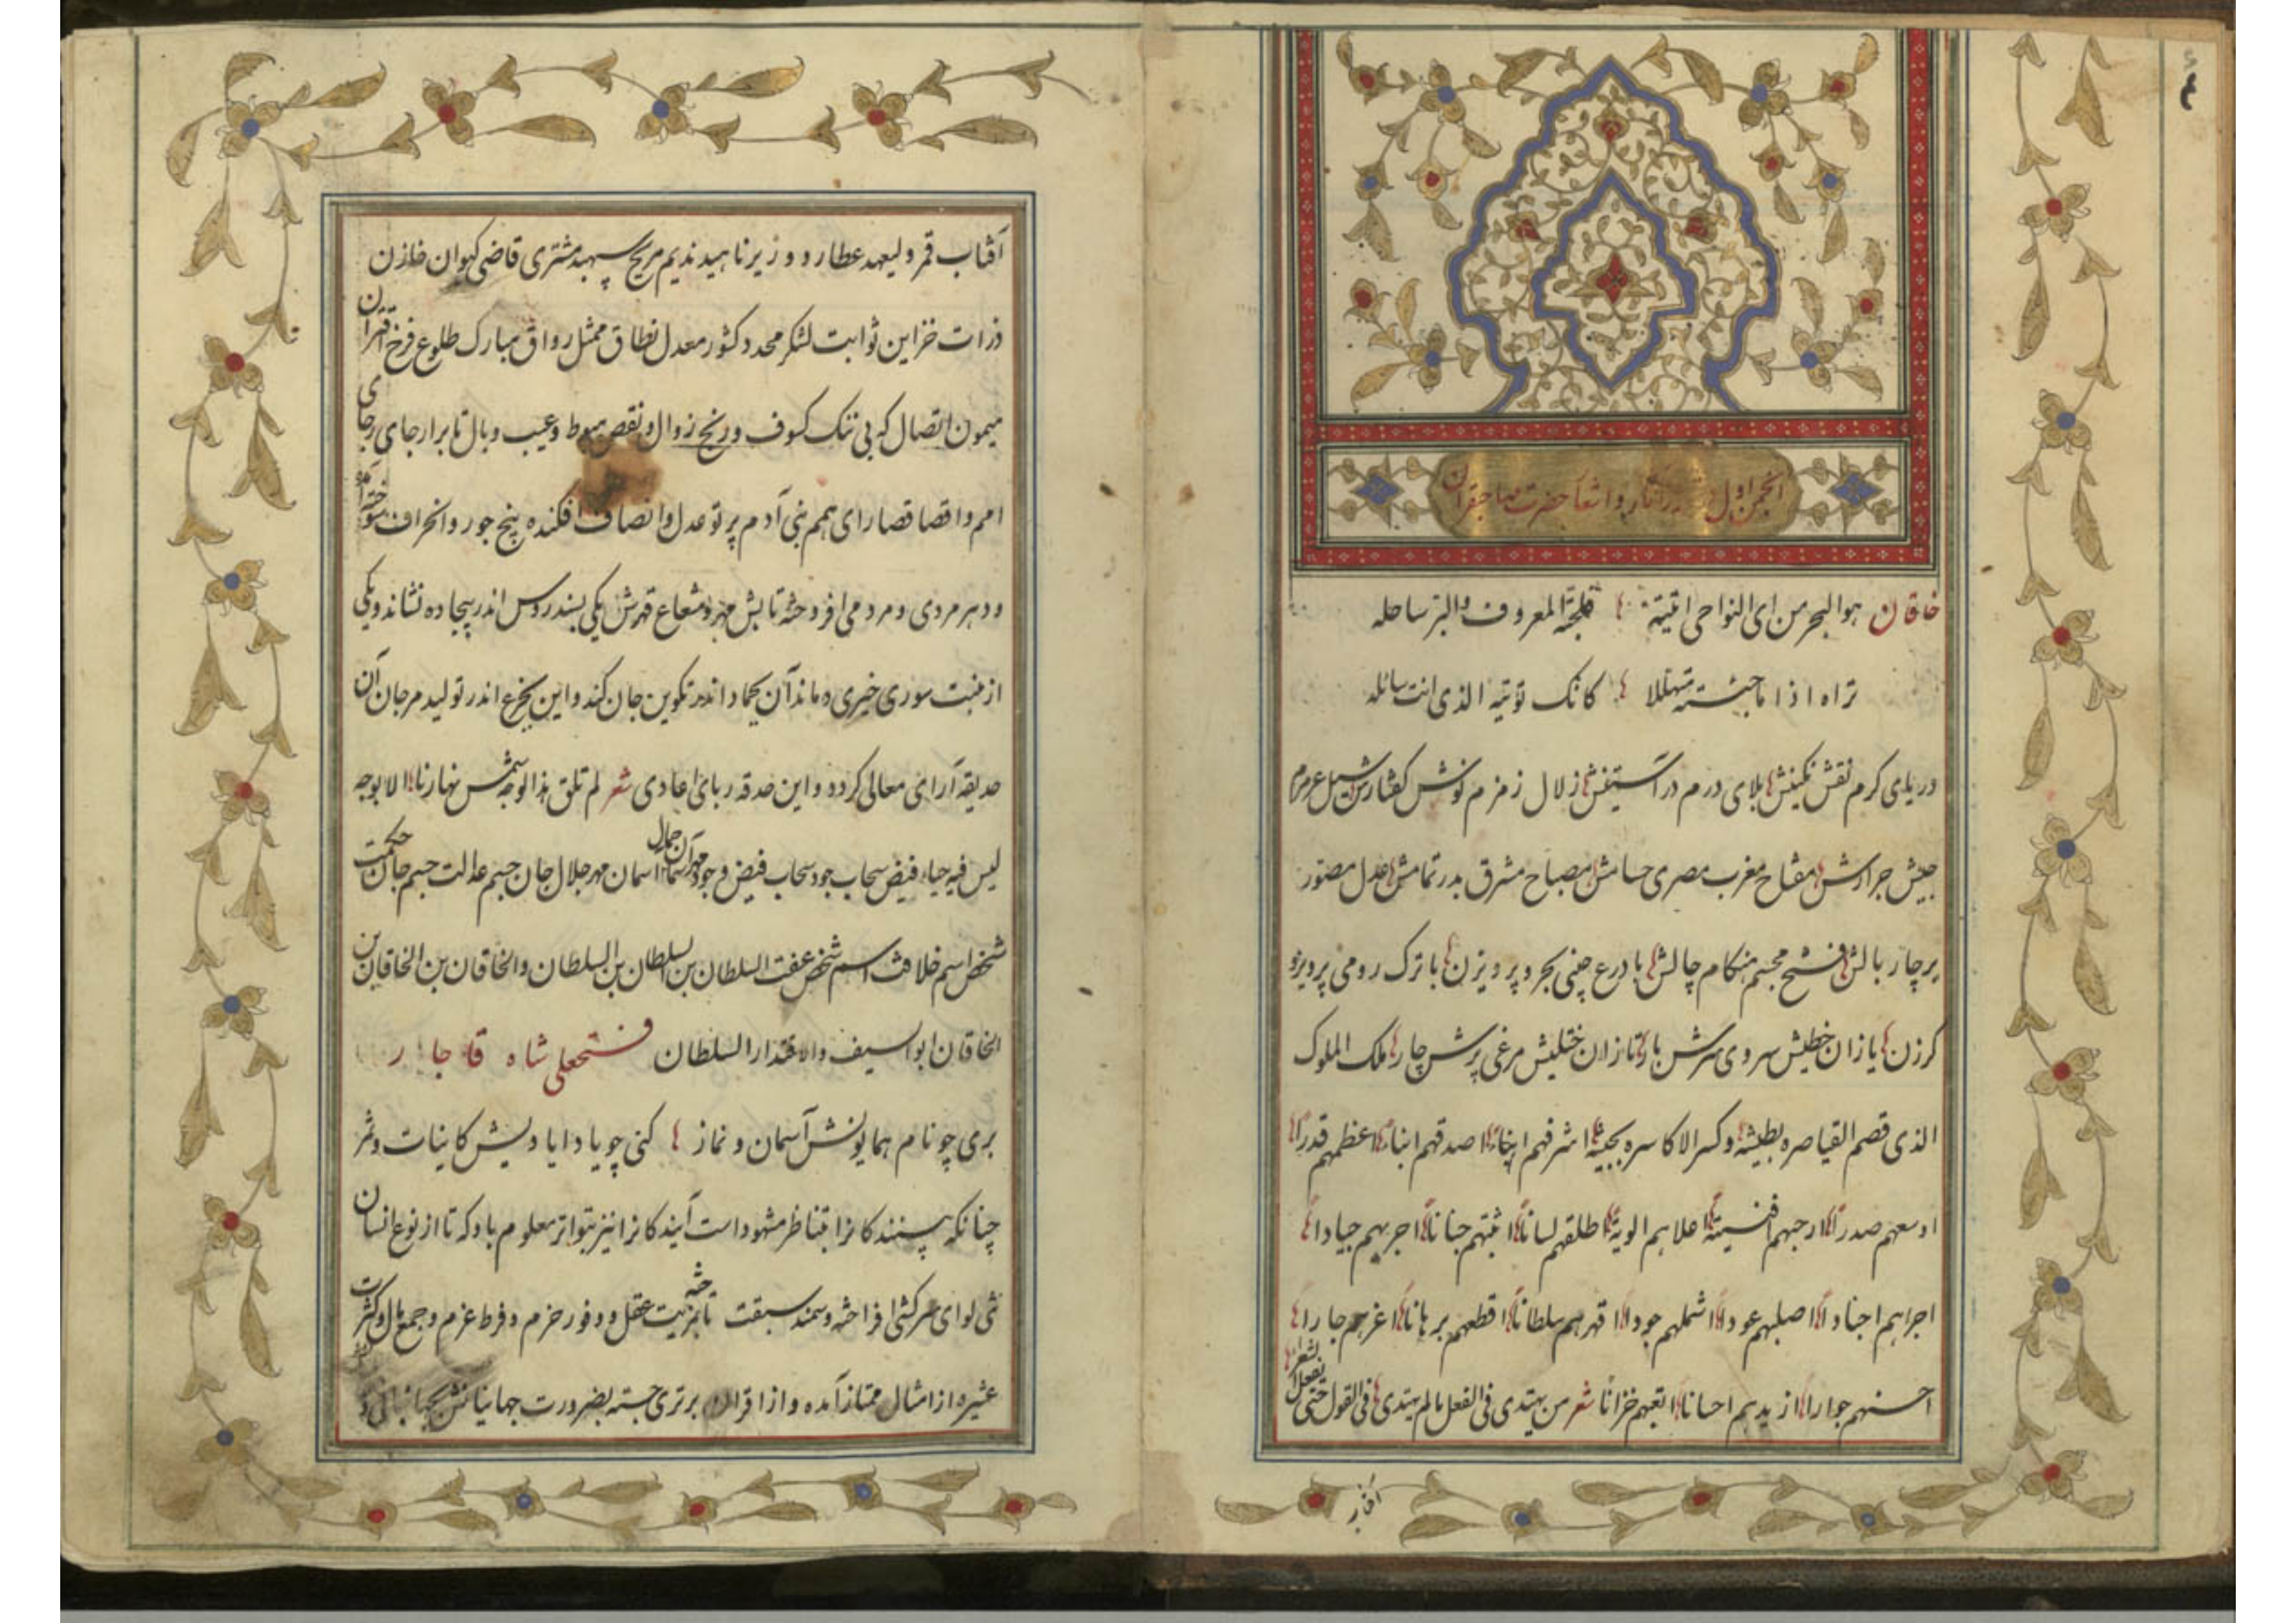 انجمن اول در آثار و اشعار حضرت صاحبقران
خاقان هو البحر من ای النواحی اتیته فلجته المعروف والبر ساحله
تراه اذا ما جئته متهللا کانک تؤتیه الذی انت سائله
دریای کرم نقش نگینش بلای درم در آستینش زلال زمزم نوش گفتارش سیل عرم
جیش جرارش مفتاح مغرب مصری حسامش مصباح مشرق بدر تمامش عدل مصور
بر چار بالش فتح مجسم هنگام چالش با درع چینی بحر و پرویزن با ترک رومی پرویز و
کرزن یازان خطیش سروی سرش بار تازان ختلیش مرغی پرش چار ملک الملوک
الذی قصم القیاصره بطیشه وکسر الاکاسره بجیشه اشرفهم اصدقهم انباء اعظمهم قدرا
اوسعهم صدرا ارحبهم اعلاهم الویة اطلقهم لسانا اثبتهم جنانا اجریهم جیادا
اجراهم اجنادا اصلبهم عودا اشملهم جودا اقهرهم سلطانا اقطعهم برهانا اعزهم جارا
احسنهم جوارا ازیدهم احسانا شعر من یهتدی فی الفعل ما لم یهتدی فی القول حتی یفعل الشعراء
آفتاب
آفتاب قمر ولیعهد عطارد وزیر ناهید ندیم مریخ سپهبد مشتری قاضی کیوان خازن
ذرات خزاین ثوابت لشکر محدد کشور معدل نطاق ممثل رواق مبارک طلوع فرخ قران
میمون اتصال که بی ننک کسوف و رنج زوال و نقص هبوط و عیب وبال تا بر ارجای رجای
امم و اقصا قصارای همم بنی آدم پرتو عدل و انصاف افکنده پنج جور و انحراف
ود هر مردی و مردمی افروخته تابش مهر و شعاع قهرش یکی بسندروس اندر بیجاده نشاند ویکی
از منبت سوری خیری دماند آن بجماد اندر تکوین جان کند و این بجزع اندر تولید مرجان آن
حدیقه آرای معالی کرده و این حدقه ربای اعادی شعر لم تلق هذا الوجه شمس نهارنا الا بوجه
لیس فیه حیاء فیض سحاب جود سحاب فیض وجود مهر آسمان جمال آسمان مهر جلال جان جسم عدالت جسم جان حکمت
شخص اسم خلافت اسم شخص عفت السلطان بن السلطان بن السلطان والخاقان بن الخاقان بن
الخاقان ابو السیف والاقتدار السلطان فتحعلی شاه قاجار
بری چو نام همایونش آسمان و نماز کنی چو یاد ایادیش کاینات و ثمر
چنانکه بینندکانرا بتناظر مشهود است آیندکانرا نیز بتواتر معلوم باد که تا از نوع انسان
تنی لوای سرکشی افراخته و سمند سبقت تاخته بمزیت عقل و وفور حزم و فرط عزم و جمع مال و کثرت
عشیره از امثال ممتاز آمده و از اقران برتری جسته بضرورت جهانیانش